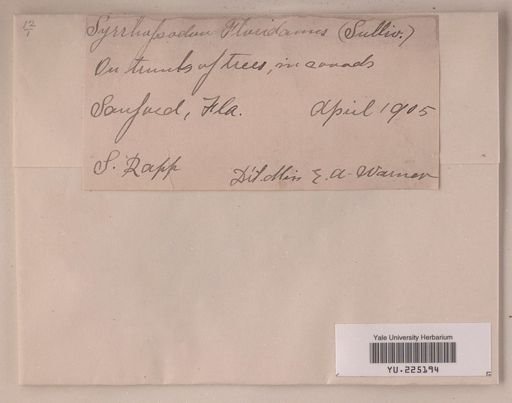 12/1
Syrrhopodon Floridanus (Sulliv.)
On trunks of trees, in woods
Sanford, Fla. April 1905
S. Rapp Dit. Miss E. A. Warner
Yale University Herbarium
YU.225194